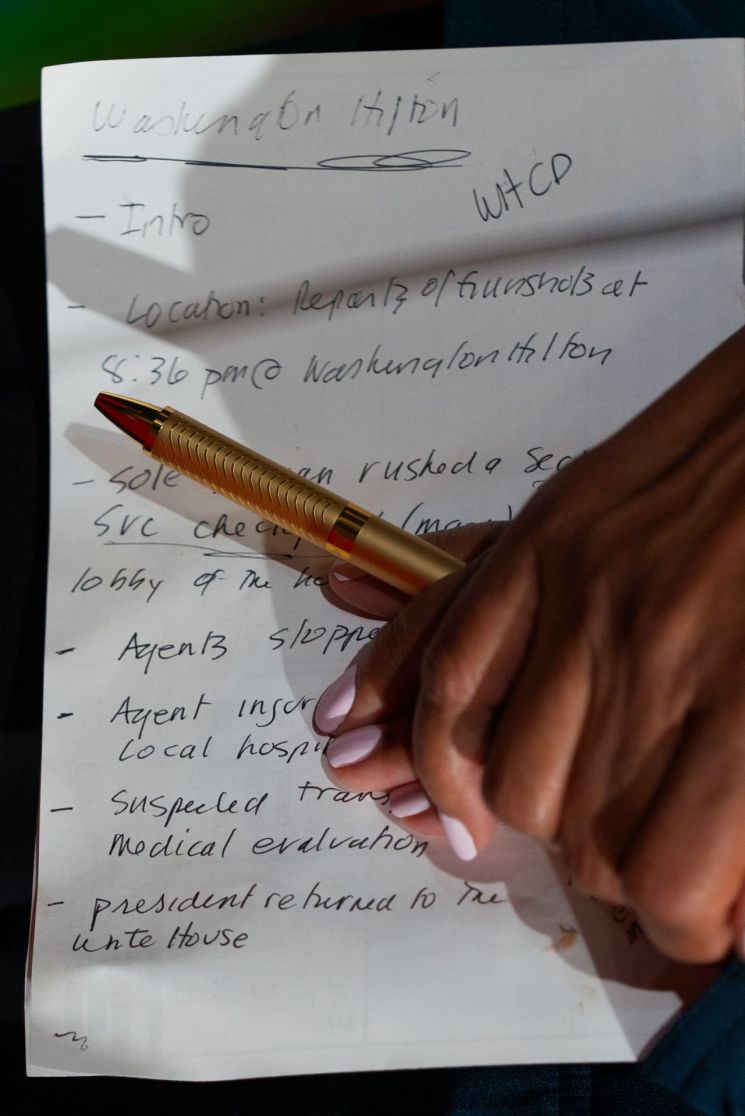 Washington Hilton
WHCD
- Intro
- Location: Reports of Gunshots at
8:36 pm @ Washington Hilton
- Sole rushed a
Svc
lobby of the
- Agents
- Agent
Local
- Suspected
Medical evaluation
- president returned to the
White House